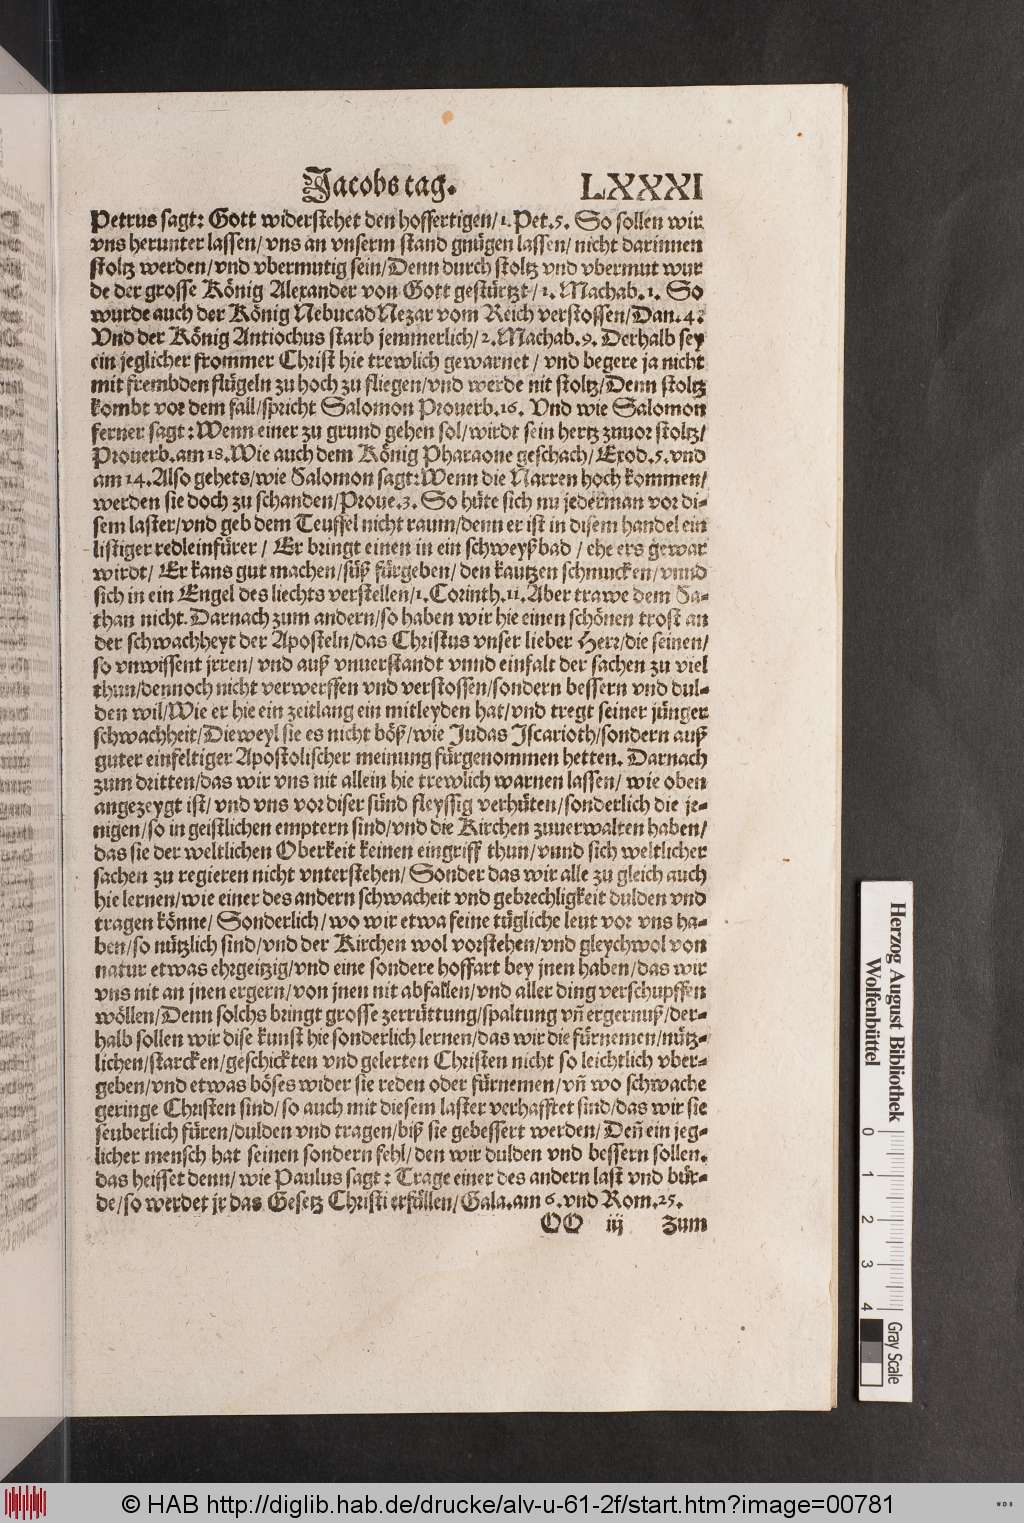 Jacobs tag. LXXXI
Petrus sagt: Gott widerstehet den hoffertigen/ 1. Pet. 5. So sollen wir
vns herunter lassen/ vns an vnserm stand gnügen lassen/ nicht darinnen
stoltz werden/ vnd vbermutig sein/ Denn durch stoltz vnd vbermut wur
de der grosse König Alexander von Gott gestürtzt/ 1. Machab. 1. So
wurde auch der König NebucadNezar vom Reich verstossen/ Dan. 4?
Vnd der König Antiochus starb jemmerlich/ 2. Machab. 9. Derhalb sey
ein jeglicher frommer Christ hie trewlich gewarnet/ vnd begere ja nicht
mit frembden flügeln zu hoch zu fliegen/ vnd werde nit stoltz/ Denn stoltz
kombt vor dem fall/ spricht Salomon Prouerb. 16. Vnd wie Salomon
ferner sagt: Wenn einer zu grund gehen sol/ wirdt sein hertz zuuor stoltz/
Prouerb. am 18. Wie auch dem König Pharaone geschach/ Exod. 5. vnd
am 14. Also gehets/ wie Salomon sagt: Wenn die Narren hoch kommen/
werden sie doch zu schanden/ Proue. 3. So hüte sich nu jederman vor di-
sem laster/ vnd geb dem Teuffel nicht raum/ denn er ist in disem handel ein
listiger redleinfürer/ Er bringt einen in ein schweyßbad/ ehe ers gewar
wirdt/ Er kans gut machen/ süß fürgeben/ den kautzen schmucken/ vnnd
sich in ein Engel des liechts verstellen/ 1. Corinth. 11. Aber trawe dem Sa-
than nicht. Darnach zum andern/ so haben wir hie einen schönen trost an
der schwachheyt der Aposteln/ das Christus vnser lieber Herr/ die seinen/
so vnwissent jrren/ vnd auß vnuerstandt vnnd einfalt der sachen zu viel
thun/ dennoch nicht verwerffen vnd verstossen/ sondern bessern vnd dul-
den wil/ Wie er hie ein zeitlang ein mitleyden hat/ vnd tregt seiner jünger
schwachheit/ Dieweyl sie es nicht böß/ wie Judas Iscarioth/ sondern auß
guter einfeltiger Apostolischer meinung fürgenommen hetten. Darnach
zum dritten/ das wir vns nit allein hie trewlich warnen lassen/ wie oben
angezeygt ist/ vnd vns vor diser sünd fleyssig verhüten/ sonderlich die je-
nigen/ so in geistlichen emptern sind/ vnd die Kirchen zuuerwalten haben/
das sie der weltlichen Oberkeit keinen eingriff thun/ vnnd sich weltlicher
sachen zu regieren nicht vnterstehen/ Sonder das wir alle zu gleich auch
hie lernen/ wie einer des andern schwacheit vnd gebrechligkeit dulden vnd
tragen könne/ Sonderlich/ wo wir etwa feine tügliche leut vor vns ha-
ben/ so nützlich sind/ vnd der Kirchen wol vorstehen/ vnd gleychwol von
natur etwas ehrgeitzig/ vnd eine sondere hoffart bey jnen haben/ das wir
vns nit an jnen ergern/ von jnen nit abfallen/ vnd aller ding verschupffen
wöllen/ Denn solchs bringt grosse zerrüttung/ spaltung vñ ergernuß/ der-
halb sollen wir dise kunst hie sonderlich lernen/ das wir die fürnemen/ nütz-
lichen/ starcken/ geschickten vnd gelerten Christen nicht so leichtlich vber-
geben/ vnd etwas böses wider sie reden oder fürnemen/ vñ wo schwache
geringe Christen sind/ so auch mit diesem laster verhafftet sind/ das wir sie
seuberlich füren/ dulden vnd tragen/ biß sie gebessert werden/ Deñ ein jeg-
licher mensch hat seinen sondern fehl/ den wir dulden vnd bessern sollen.
das heisset denn/ wie Paulus sagt: Trage einer des andern last vnd bür-
de/ so werdet jr das Gesetz Christi erfüllen/ Gala. am 6. vnd Rom. 25.
OO iij Zum
Herzog August Bibliothek
Wolfenbüttel
0 1 2 3 4
Gray Scale
© HAB http://diglib.hab.de/drucke/alv-u-61-2f/start.htm?image=00781